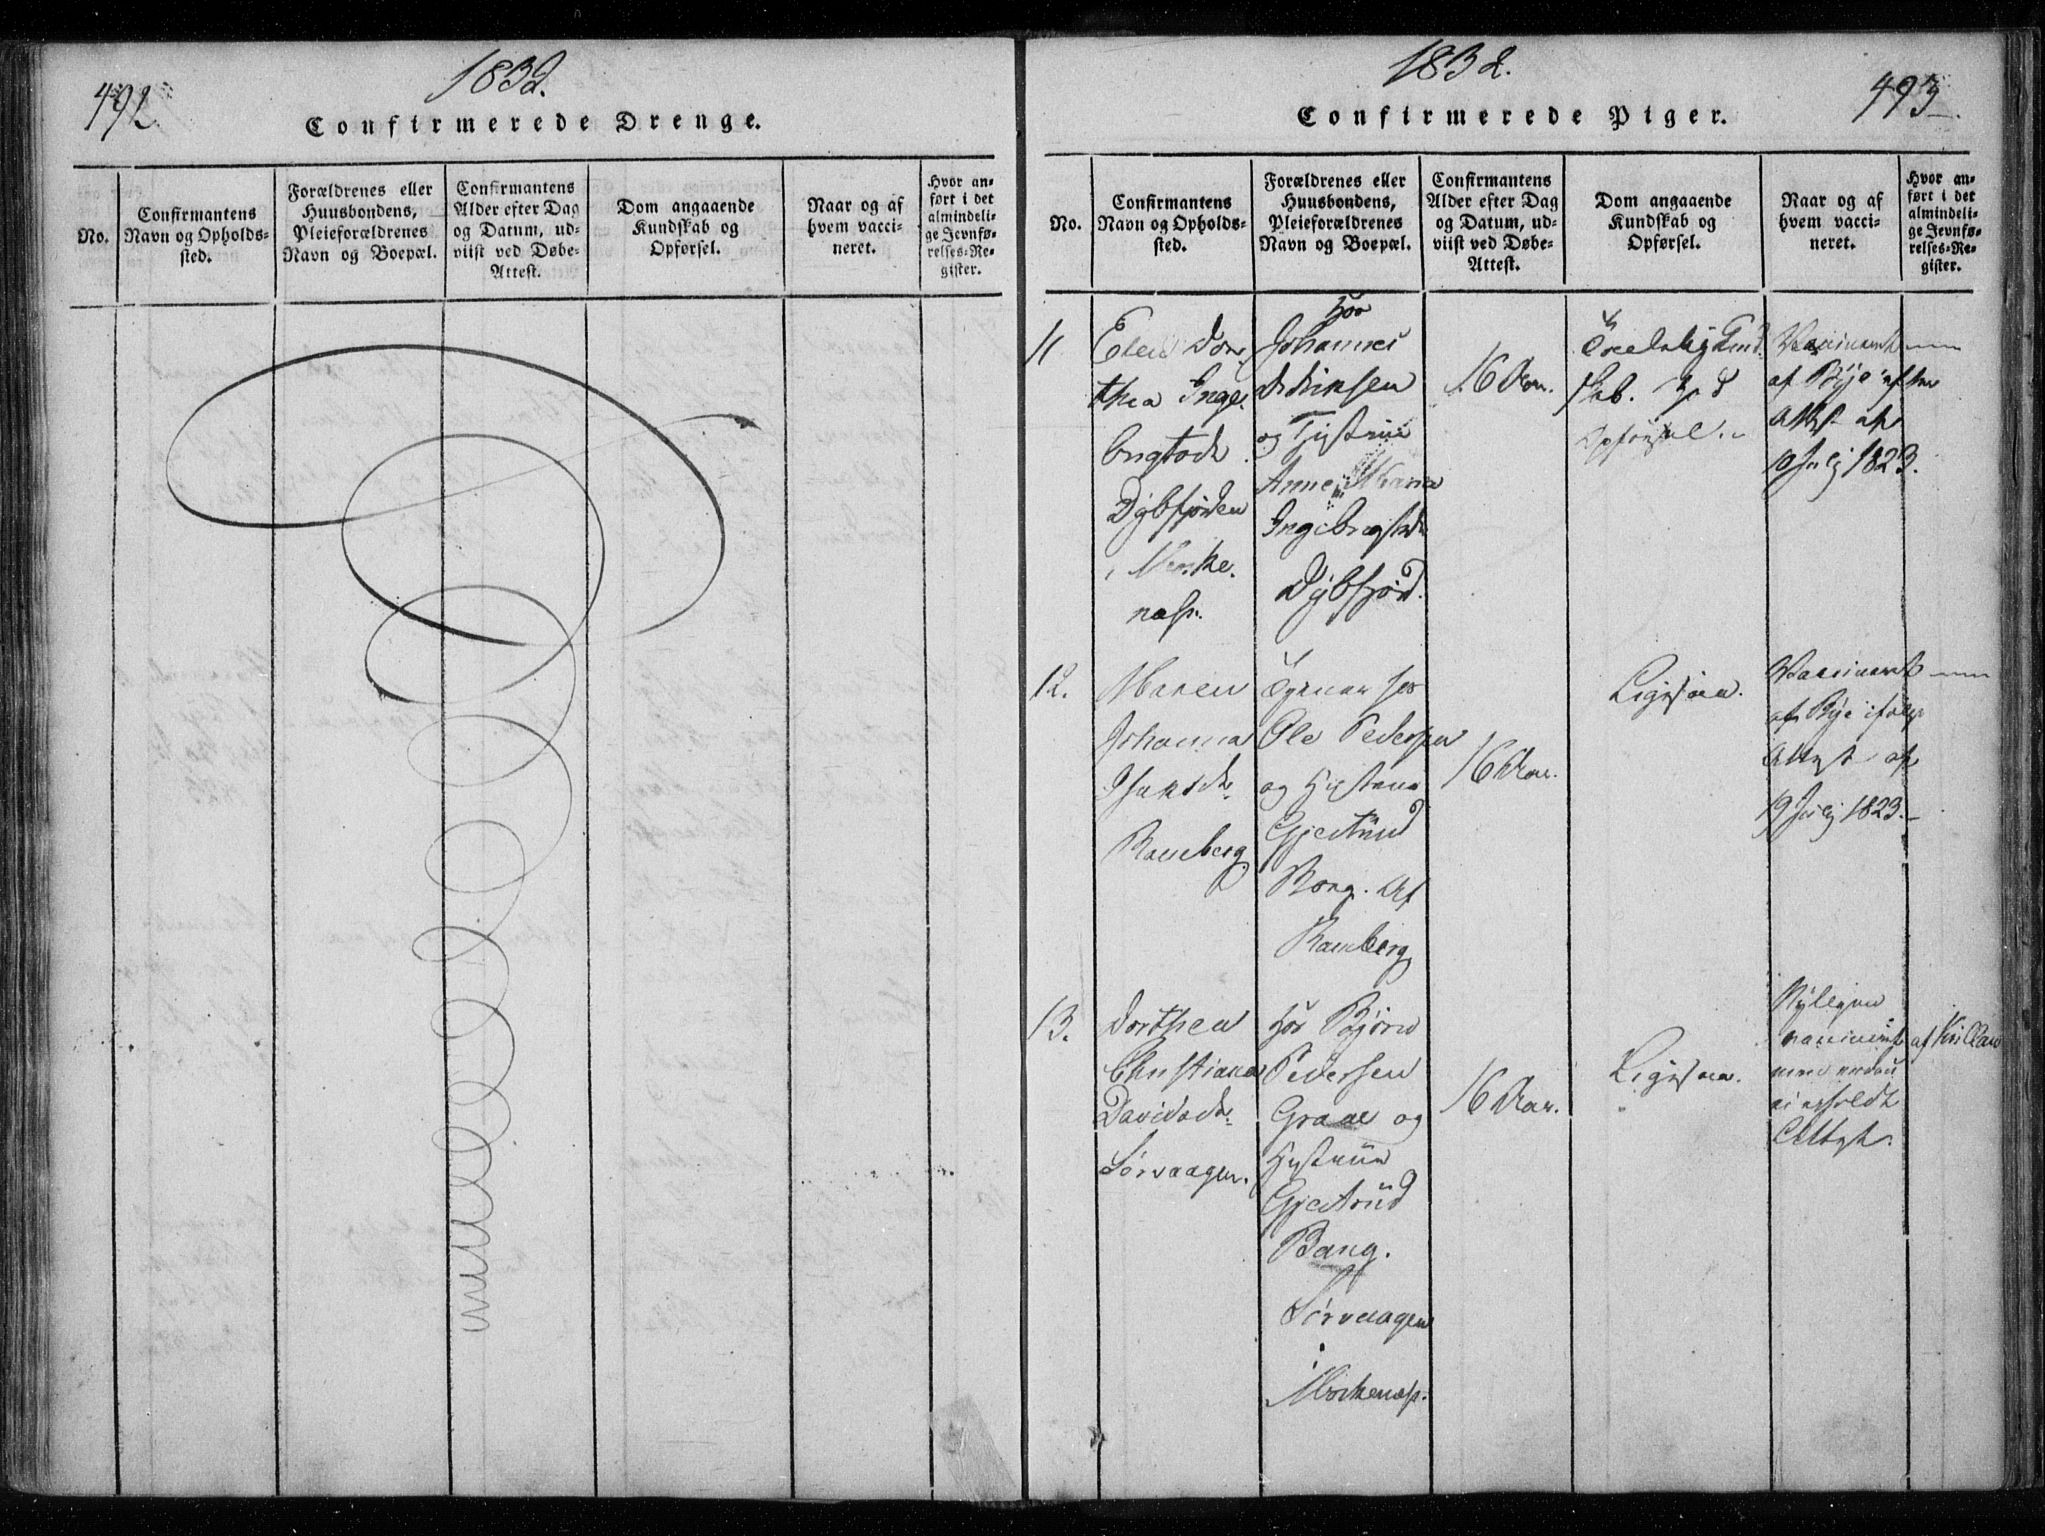 492
1832.
Confirmerede Drenge.
No.
Confirmantens
Navn og Opholds-
sted.
Forældrenes eller
Huusbondens,
Pleieforældrenes
Navn og Boepæl.
Confirmantens
Alder efter Dag
og Datum, ud-
viist ved Døbe-
Attest.
Dom angaaende
Kundskab og
Opførsel.
Naar og af
hvem vacci-
neret.
Hvor an-
ført i det
almindeli-
ge Jevnfø-
relses-Re-
gister.
1832.
493
Confirmerede Piger.
No.
Confirmantens
Navn og Opholds-
sted.
Forældrenes eller
Huusbondens,
Pleieforældrenes
Navn og Boepæl.
Confirmantens
Alder efter Dag
og Datum, ud-
viist ved Døbe-
Attest.
Dom angaaende
Kundskab og
Opførsel.
Naar og af
hvem vacci-
neret.
Hvor an-
ført i det
almindeli-
ge Jevnfø-
relses-Re-
gister.
11
Elen Dor
thea Inge
brigtsdr.
Dybfjorden
næss.
Hos
Johannes
Didriksen
og Hustrue
Anne Maria
Ingebrigtsdr
Dybfjord.
16 Aar.
skab.
Opførsel.
Vaccineret
af Bye efter
Attest af
19 July 1823.
12.
Maren
Johanna
Isaksdr.
Ramberg
hos
Ole Pedersen
og Hustrue
Gjertrud
af
Ramberg
16 Aar.
Ligesaa.
Vaccineret
af Bye ifølge
Attest af
19 July 1823.
13.
Dorthea
Christiana
Davidsdr.
Sørvaagen.
Hos Bjørn
Pedersen
Graae og
Hustrue
Gjertrud
Bang.
Sørvaagen
i
Moskenæss.
16 Aar.
Ligesaa.
Nyligen
vaccineret af
men endnu
ei erholdt
Attest.